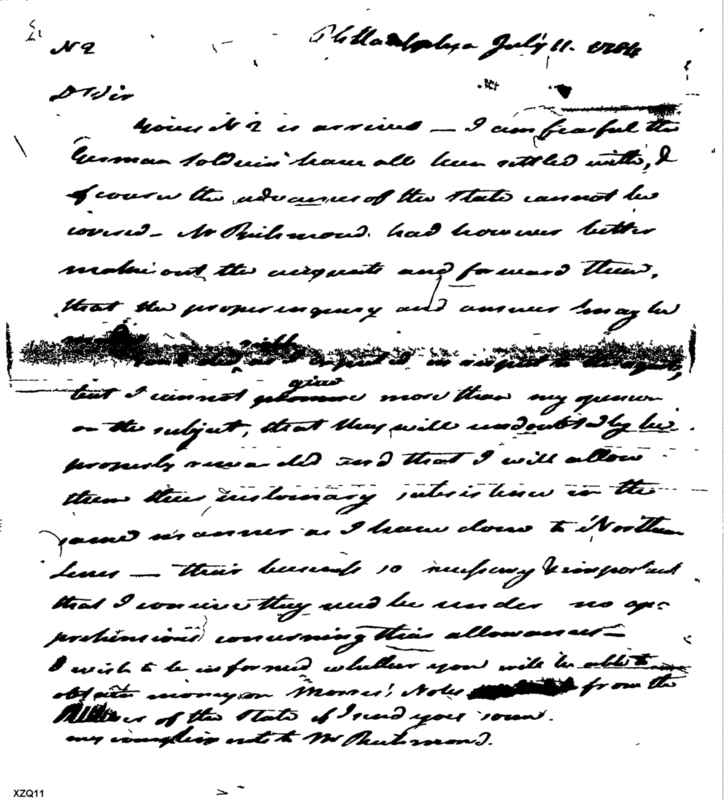 N 2
Philadelphia July 11. 1784
D Sir
Yours N 2 is arrived — I am fearful the
German soldiers have all been settled with, &
of course the advances of the State cannot be
covered — Mr Richmond had however better
make out the accounts and forward them,
that the proper inquiry and answer may be
I expected in respect to the agents,
but I cannot give more than my opinion
on the subject, that they will undoubtedly be
properly rewarded and that I will allow
them their customary subsistence in the
same manner as I have done to Northern
Lines — their business so necessary & important
that I conceive they need be under no ap-
prehensions concerning their allowances —
I wish to be informed whether you will be able to
obtain money on Morris's Notes from the
of the State if I send you some.
my compliments to Mr Richmond.
XZQ11